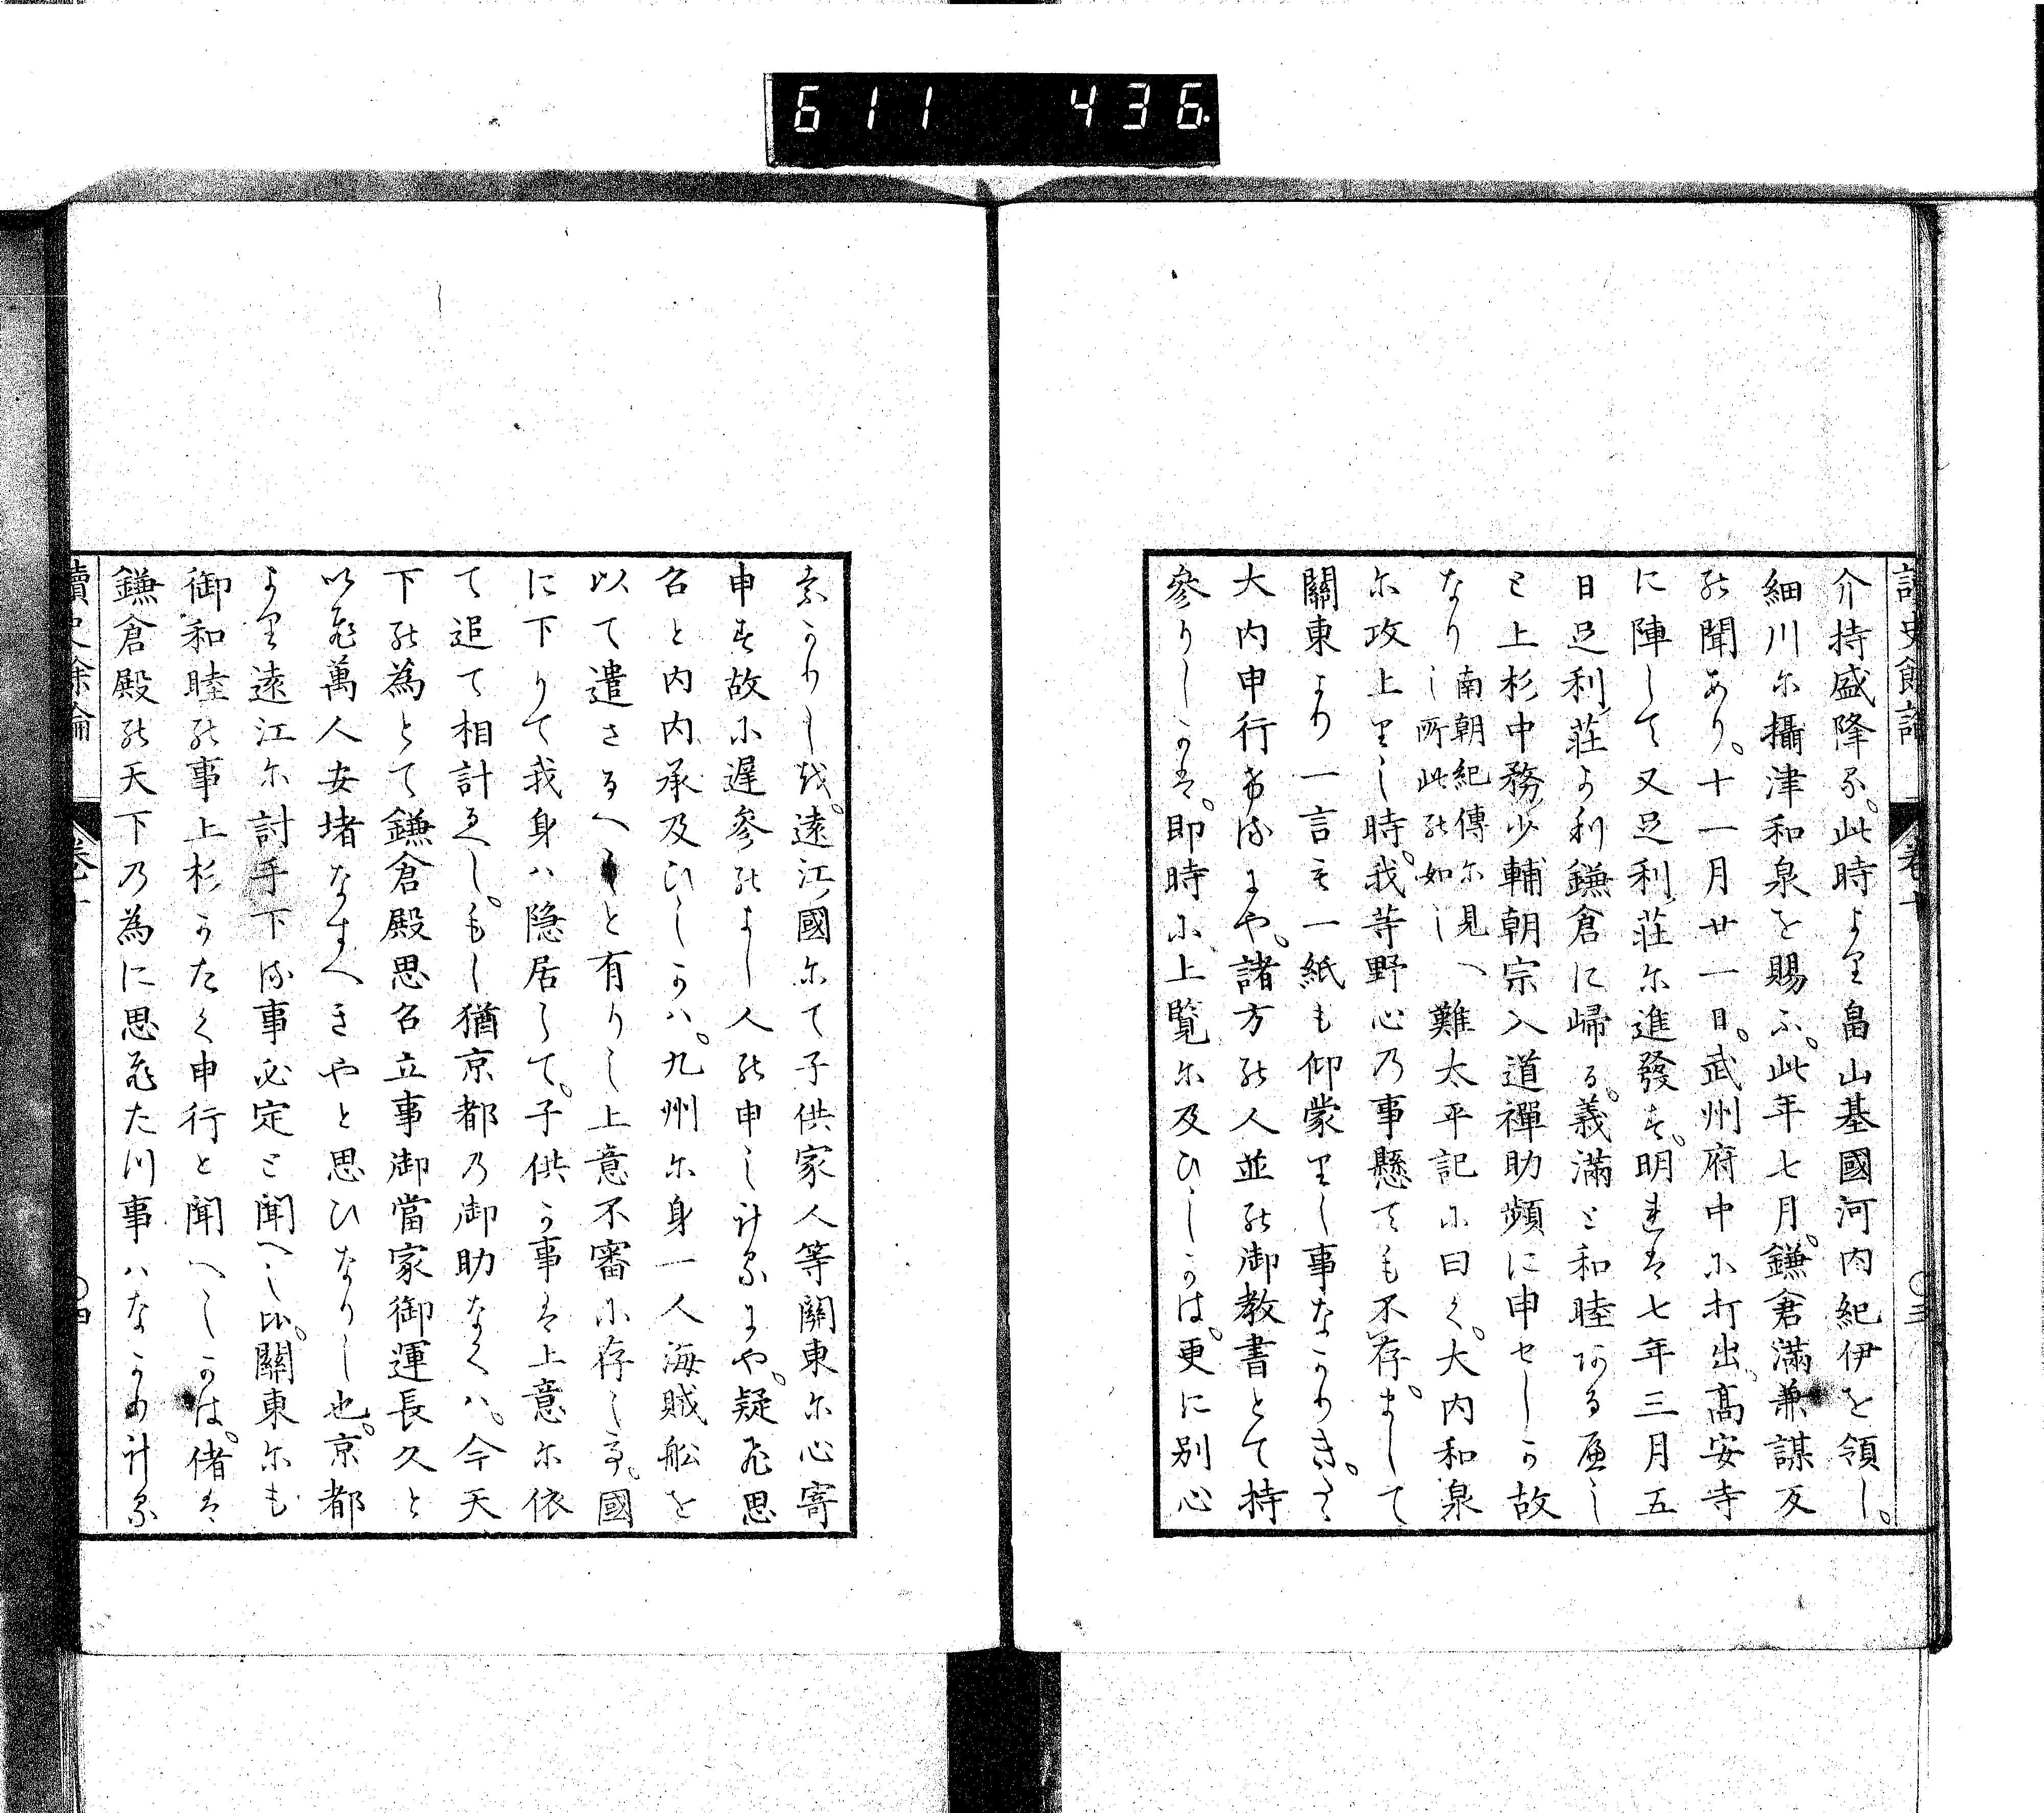 611 436
讀史餘論 卷十 ○三
介持盛降る。此時より畠山基國河内紀伊を領し。
細川に攝津和泉を賜ふ。此年七月。鎌倉滿兼謀反
の聞あり。十一月廿一日。武州府中に打出、高安寺
に陣して又足利莊に進發す。明れは七年三月五
日足利莊より鎌倉に歸る。義滿と和睦ある
と上杉中務少輔朝宗入道禪助頻に申セしか故
なり
南朝紀傳に見へ
し所此の如し
難太平記に曰く。大内和泉
に攻上りし時。我等野心乃事懸ても不存。まして
關東より一言も一紙も仰蒙りし事なかりき。さ
大内申行けるにや。諸方の人並の御教書とて持
參りしかは。即時に上覧に及ひしかは。更に別心
なかりしを。遠江國にて子供家人等關東に心寄
申す故に遲參のよし人の申し計るにや。疑思
召と内内承及ひしかハ。九州に身一人海賊船を
以て遣さるへしと有りし上意不審に存し事。國
に下りて我身ハ隱居して。子供か事は上意に依
て追て相計るへし。もし猶京都乃御助なくハ。今天
下の為とて鎌倉殿思召立事御當家御運長久と
以て萬人安堵なすへきやと思ひなりし也。京都
より遠江に討手下る事必定と聞へし比。關東にも
御和睦の事上杉かたく申行と聞へしかは。偖は
鎌倉殿の天下乃為に思たつ事ハなかり計る
讀史餘論 卷十 ○四